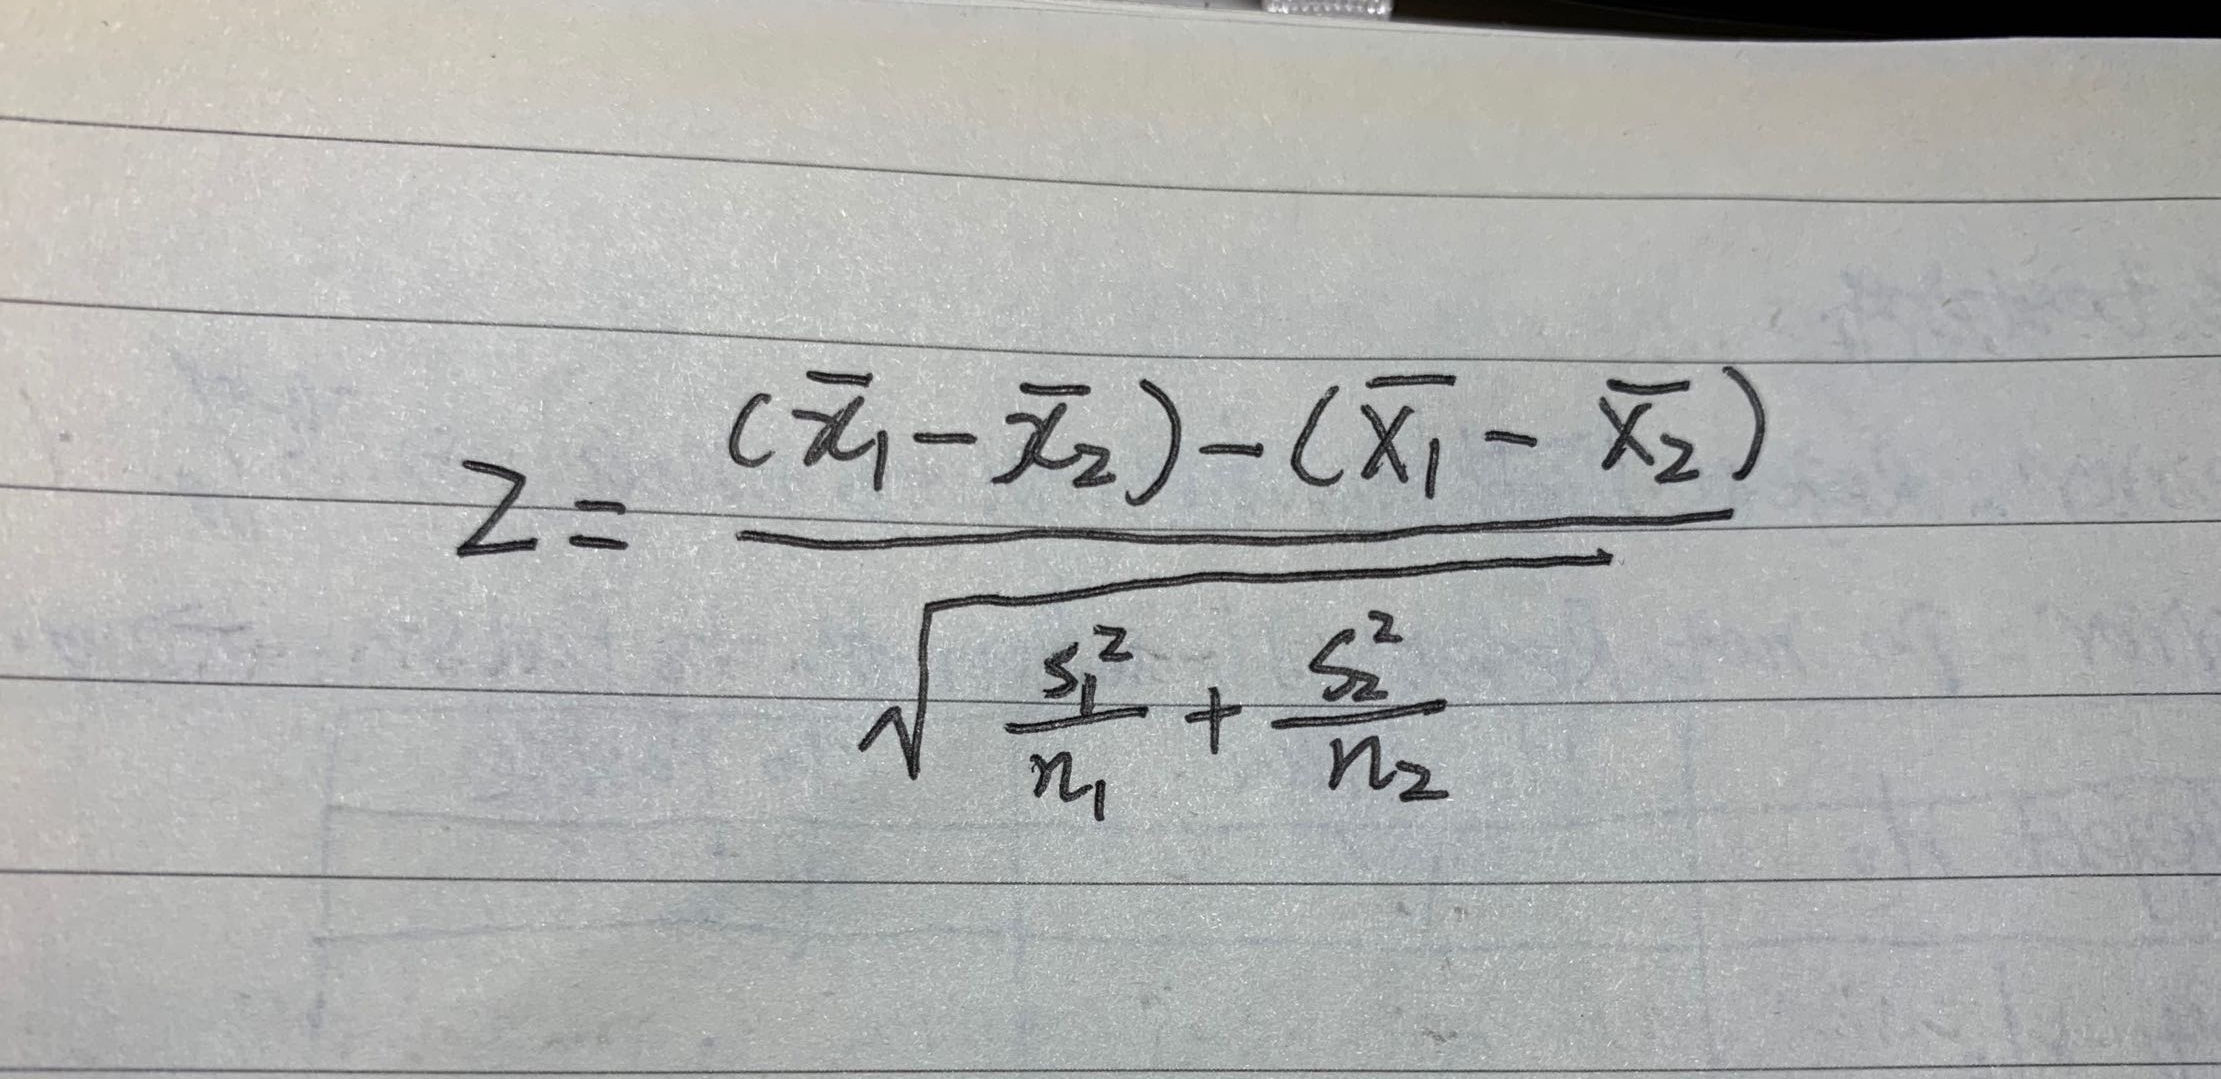 z = \frac{(\bar{x}_1 - \bar{x}_2) - (\bar{X}_1 - \bar{X}_2)}{\sqrt{\frac{s_1^2}{n_1} + \frac{s_2^2}{n_2}}}